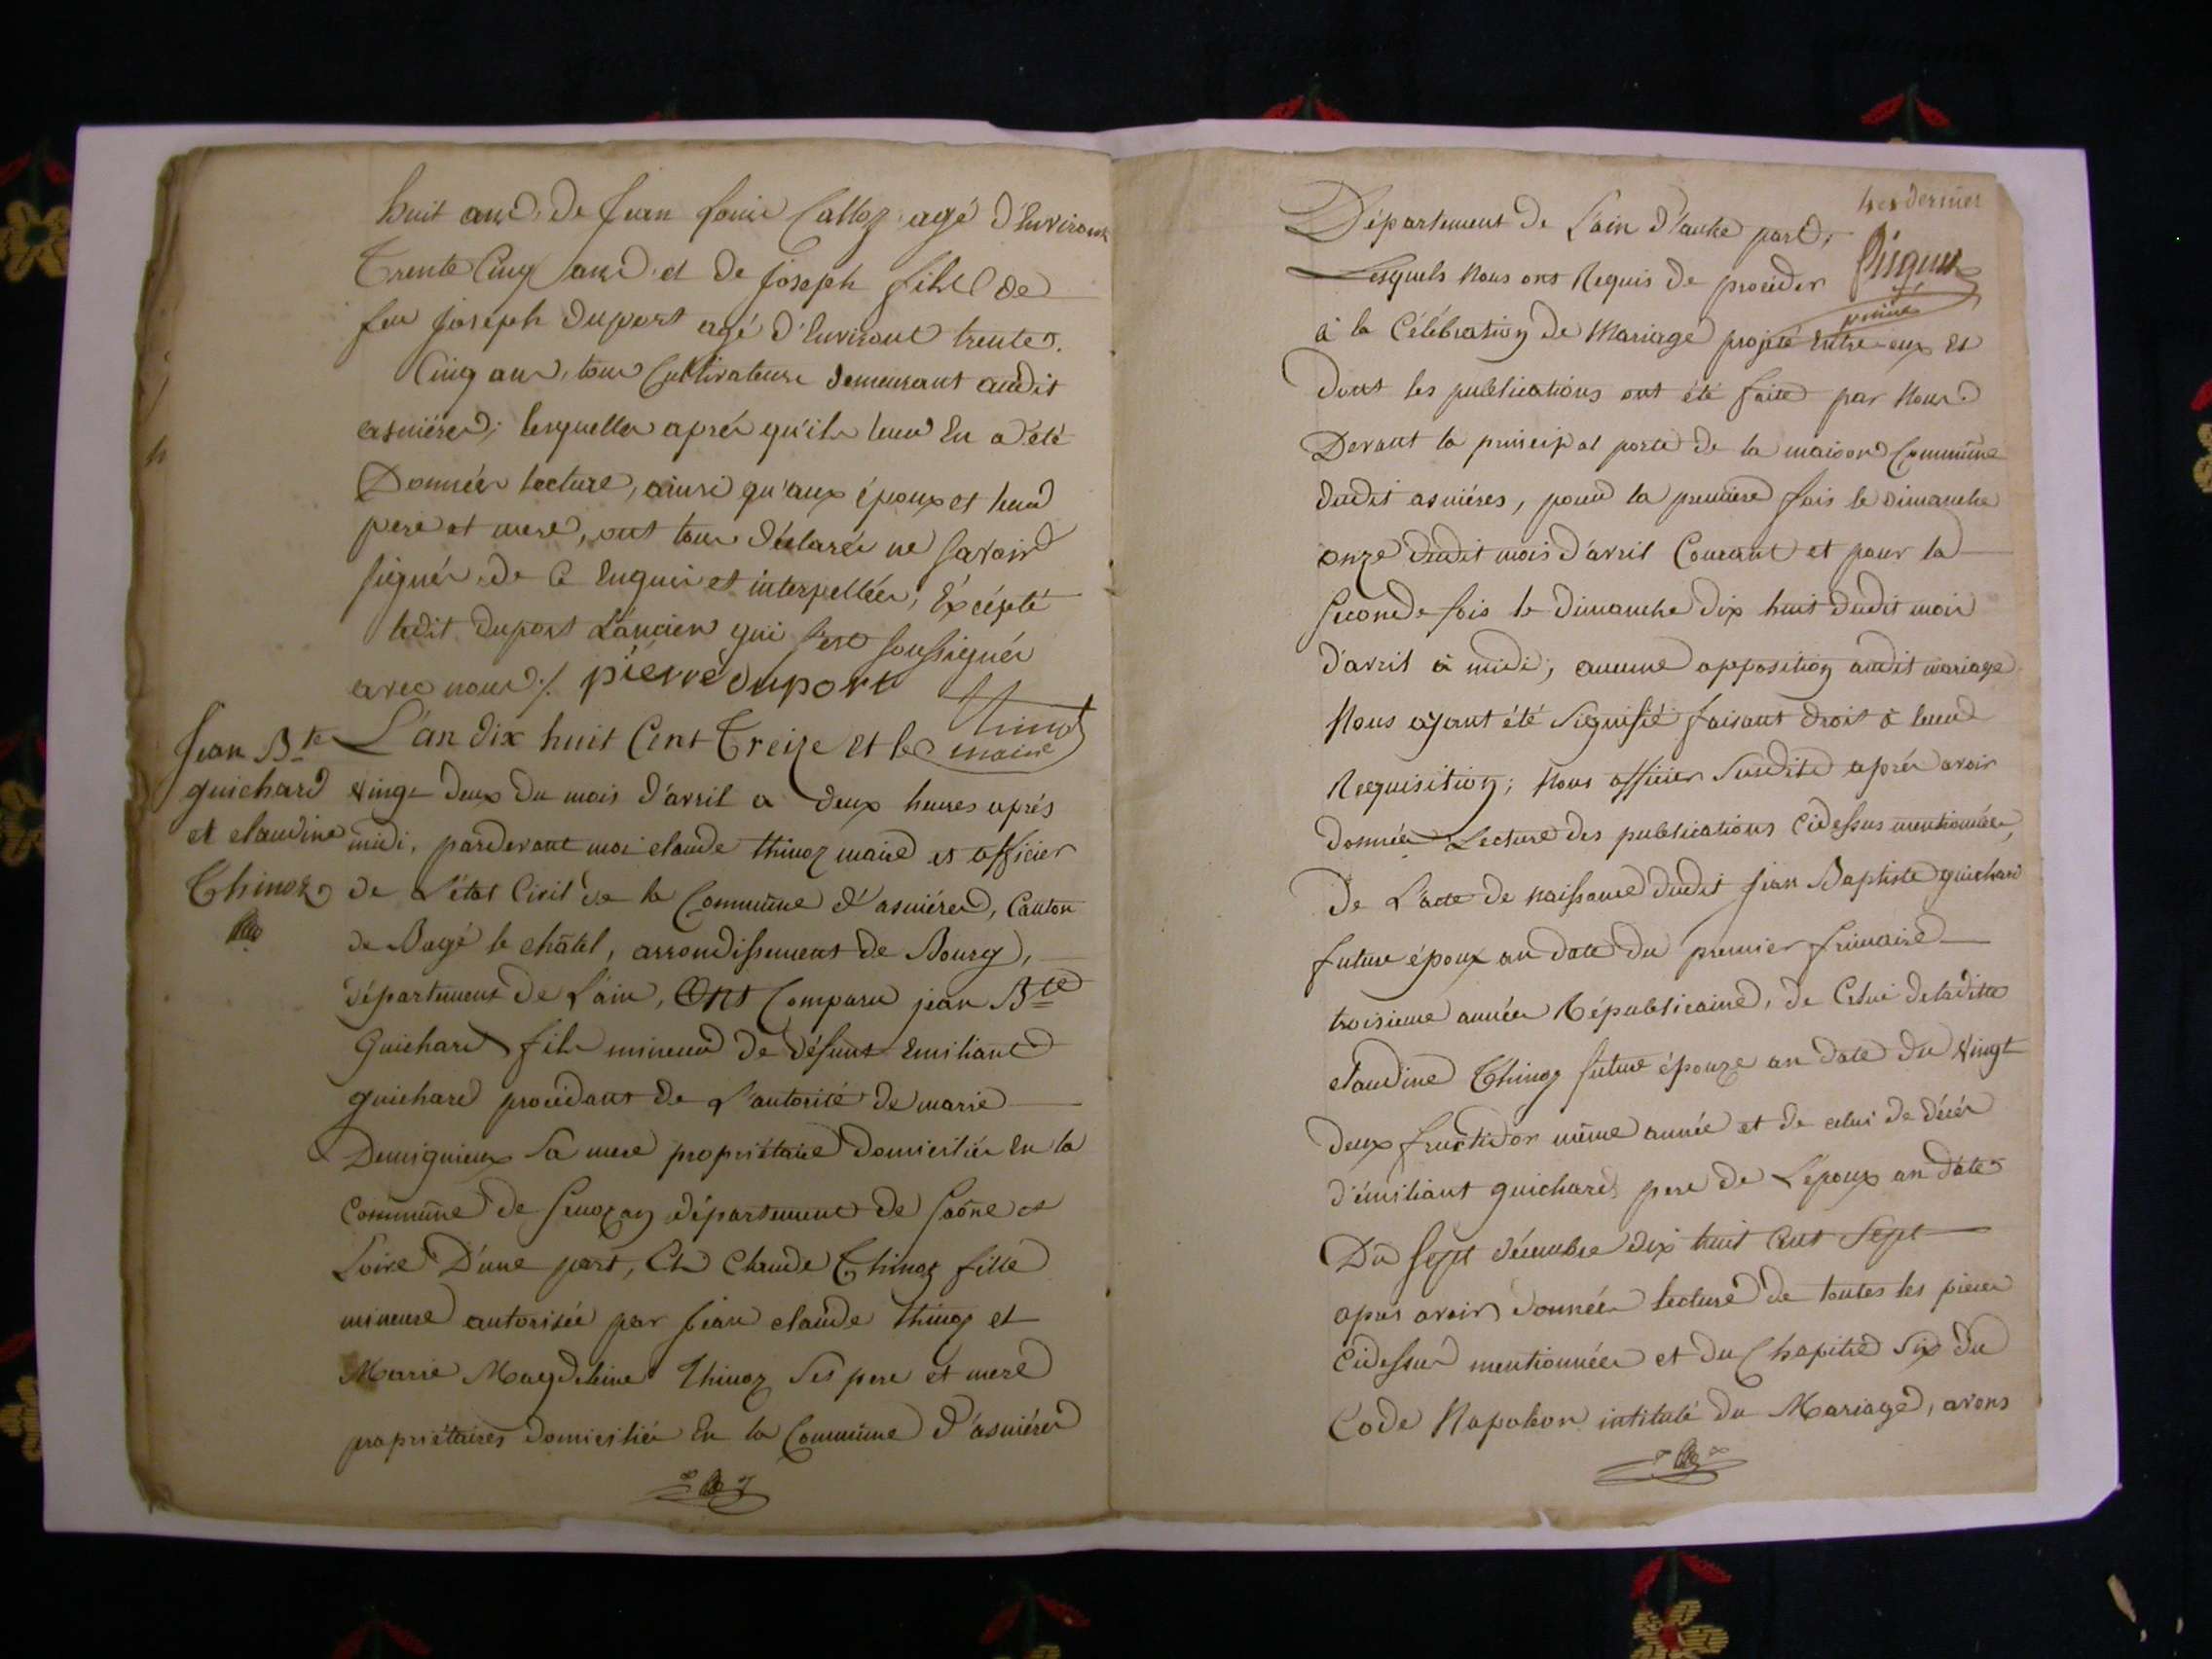 huit ans, de Jean Louis Calloz agé d'Environt
Trente Cinq ans et de Joseph fils de
feu Joseph Duport agé d'Environt trente
Cinq ans, tous Cultivateurs demeurant audit
asniéres; lesquelles aprés qu'ils leur En a été
Donnéer lecture, ainsi qu'aux époux et leur
pere et mere, ont tous déclarér ne Savoir
signér de ce Enquis et interpellés, Excépté
ledit Duport L'ancien qui s'est Soussignér
avec nous ./. pierre duport
Thinoz
maire
Jean Bte
guichard
et claudine
Thinoz
L'an dix huit Cent Treize et le
vingt deux du mois d'avril a deux heures aprés
midi, pardevant moi claude thinoz maire et officier
de L'état Civil de la Commune d'asniéres, Canton
de Bagé le châtel, arrondissement de Bourg,
département de L'ain, Ont Comparu jean Bte
Guichard fils mineur de défunt Emiliant
guichard procédant de L'autorité de marie
Demigneux sa mere propriétaire domiciliée En la
Commune de Senozan département de Saône et
Loire D'une part, Et Claude Thinoz fille
mineure autorisée par Jean claude thinoz et
Marie Magdeleine Thinoz Ses pere et mere
propriétaires domiciliés En la Commune d'asniéres
4es dernier
Département de L'ain d'autre part,
Lesquels Nous ont Requis de procéder
à la Célébration de Mariage projeté Entre eux et
Dont les publications ont été faite par Nous
Devant la principal porte de la maison Commune
dudit asniéres, pour la premiere fois le dimanche
onze dudit mois d'avril Courant et pour la
Seconde fois le dimanche dix huit dudit mois
d'avril à midi; aucune opposition audit mariage
Nous ayant été Signifié faisant droit à leur
Requisition; Nous officier Susdit aprés avoir
donnéer Lecture des publications Cidessus mentionnées,
De L'acte de naissance dudit Jean Baptiste guichard
future époux an date du premier frimaire
troisieme année Républicaine, de Celui de ladite
claudine Thinoz future épouze an date du vingt
deux fructidor même année et de celui de décés
d'émiliant guichard pere de L'époux an date
Du Sept décembre dix huit Cent Sept
apres avoir donnéer lecture de toutes les pieces
Cidessus mentionnées et du Chapitre Six du
Code Napoléon intitulé du Mariage, avons